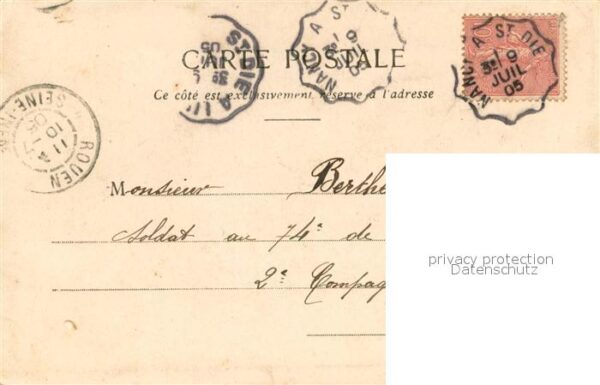 CARTE POSTALE
Ce côté est exclusivement réservé à l'adresse
NANCY A ST DIE
3E 9
JUIL
05
NANCY A ST DIE
ST DIE A
3E
05
ROUEN
SEINE-INF
11
10
05
Monsieur Berthe
Soldat au 74e de
2e Compag
privacy protection
Datenschutz